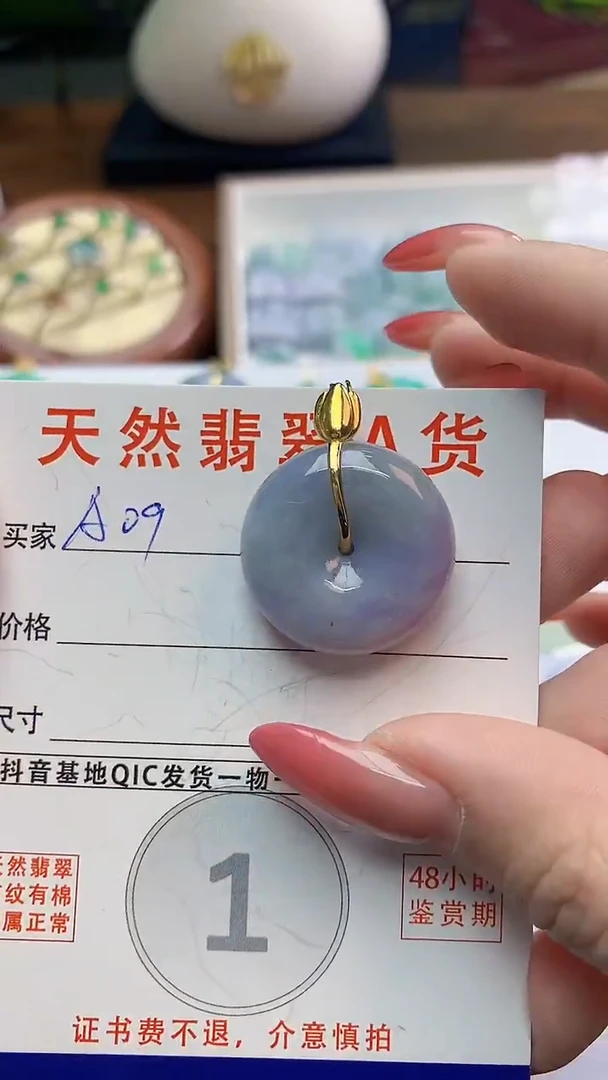 天然翡翠A货
买家 A09
价格
尺寸
抖音基地QIC发货一物一
天然翡翠
纹有棉
属正常
1
48小时
鉴赏期
证书费不退，介意慎拍